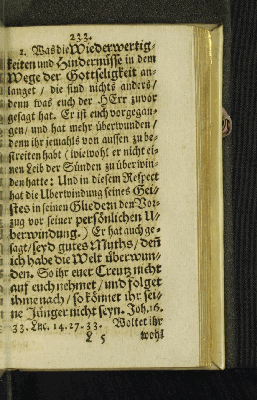 233.
2. Was die Wiederwertig-
keiten und Hindernüsse in dem
Wege der Gottseligkeit an-
langet / die sind nichts anders /
denn was euch der HErr zuvor
gesagt hat. Er ist euch vorgegan-
gen / und hat mehr überwunden /
denn ihr jemahls von aussen zu be-
streiten habt (wiewohl er nicht ei-
nen Leib der Sünden zu überwin-
den hatte: Und in diesem Respect
hat die Uberwindung seines Gei-
stes in seinen Gliedern den Vor-
zug vor seiner persönlichen U-
berwindung.) Er hat auch ge-
sagt / seyd gutes Muths / deñ
ich habe die Welt überwun-
den. So ihr euer Creutz nicht
auf euch nehmet / und folget
ihme nach / so könnet ihr sei-
ne Jünger nicht seyn. Joh. 16.
33. Luc. 14. 27. 33. Woltet ihr
L 5 wohl